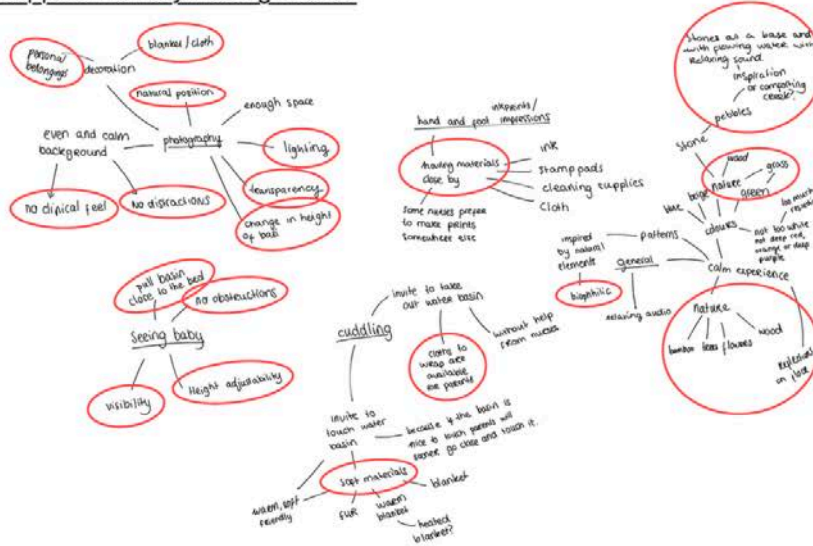 personal
belongings
decoration
blanket/cloth
natural position
enough space
even and calm
background
photography
lighting
no clinical feel
no distractions
transparency
change in height
of bath
pull basin
close to the bed
no obstructions
seeing baby
visibility
Height adjustability
inkprints/
hand and foot impressions
having materials
close by
ink
stamp pads
cleaning supplies
cloth
some nurses prefer
to make prints
somewhere else
invite to take
out water basin
cuddling
without help
from nurses
cloths to
wrap are
available
for parents
invite to
touch water
basin
because if the basin is
nice to touch parents will
sooner go close and touch it.
soft materials
blanket
warm, soft
friendly
fur
warm
blanket
heated
blanket?
stones as a base and
with flowing water with
relaxing sound
inspiration
or comforting
pebbles
stone
wood
grass
nature
green
beige
blue
colours
too much
not too white
not deep red,
orange or deep
purple
patterns
inspired
by natural
elements
general
calm experience
biophilic
relaxing audio
nature
bamboo
trees
flowers
wood
reflections
on floor